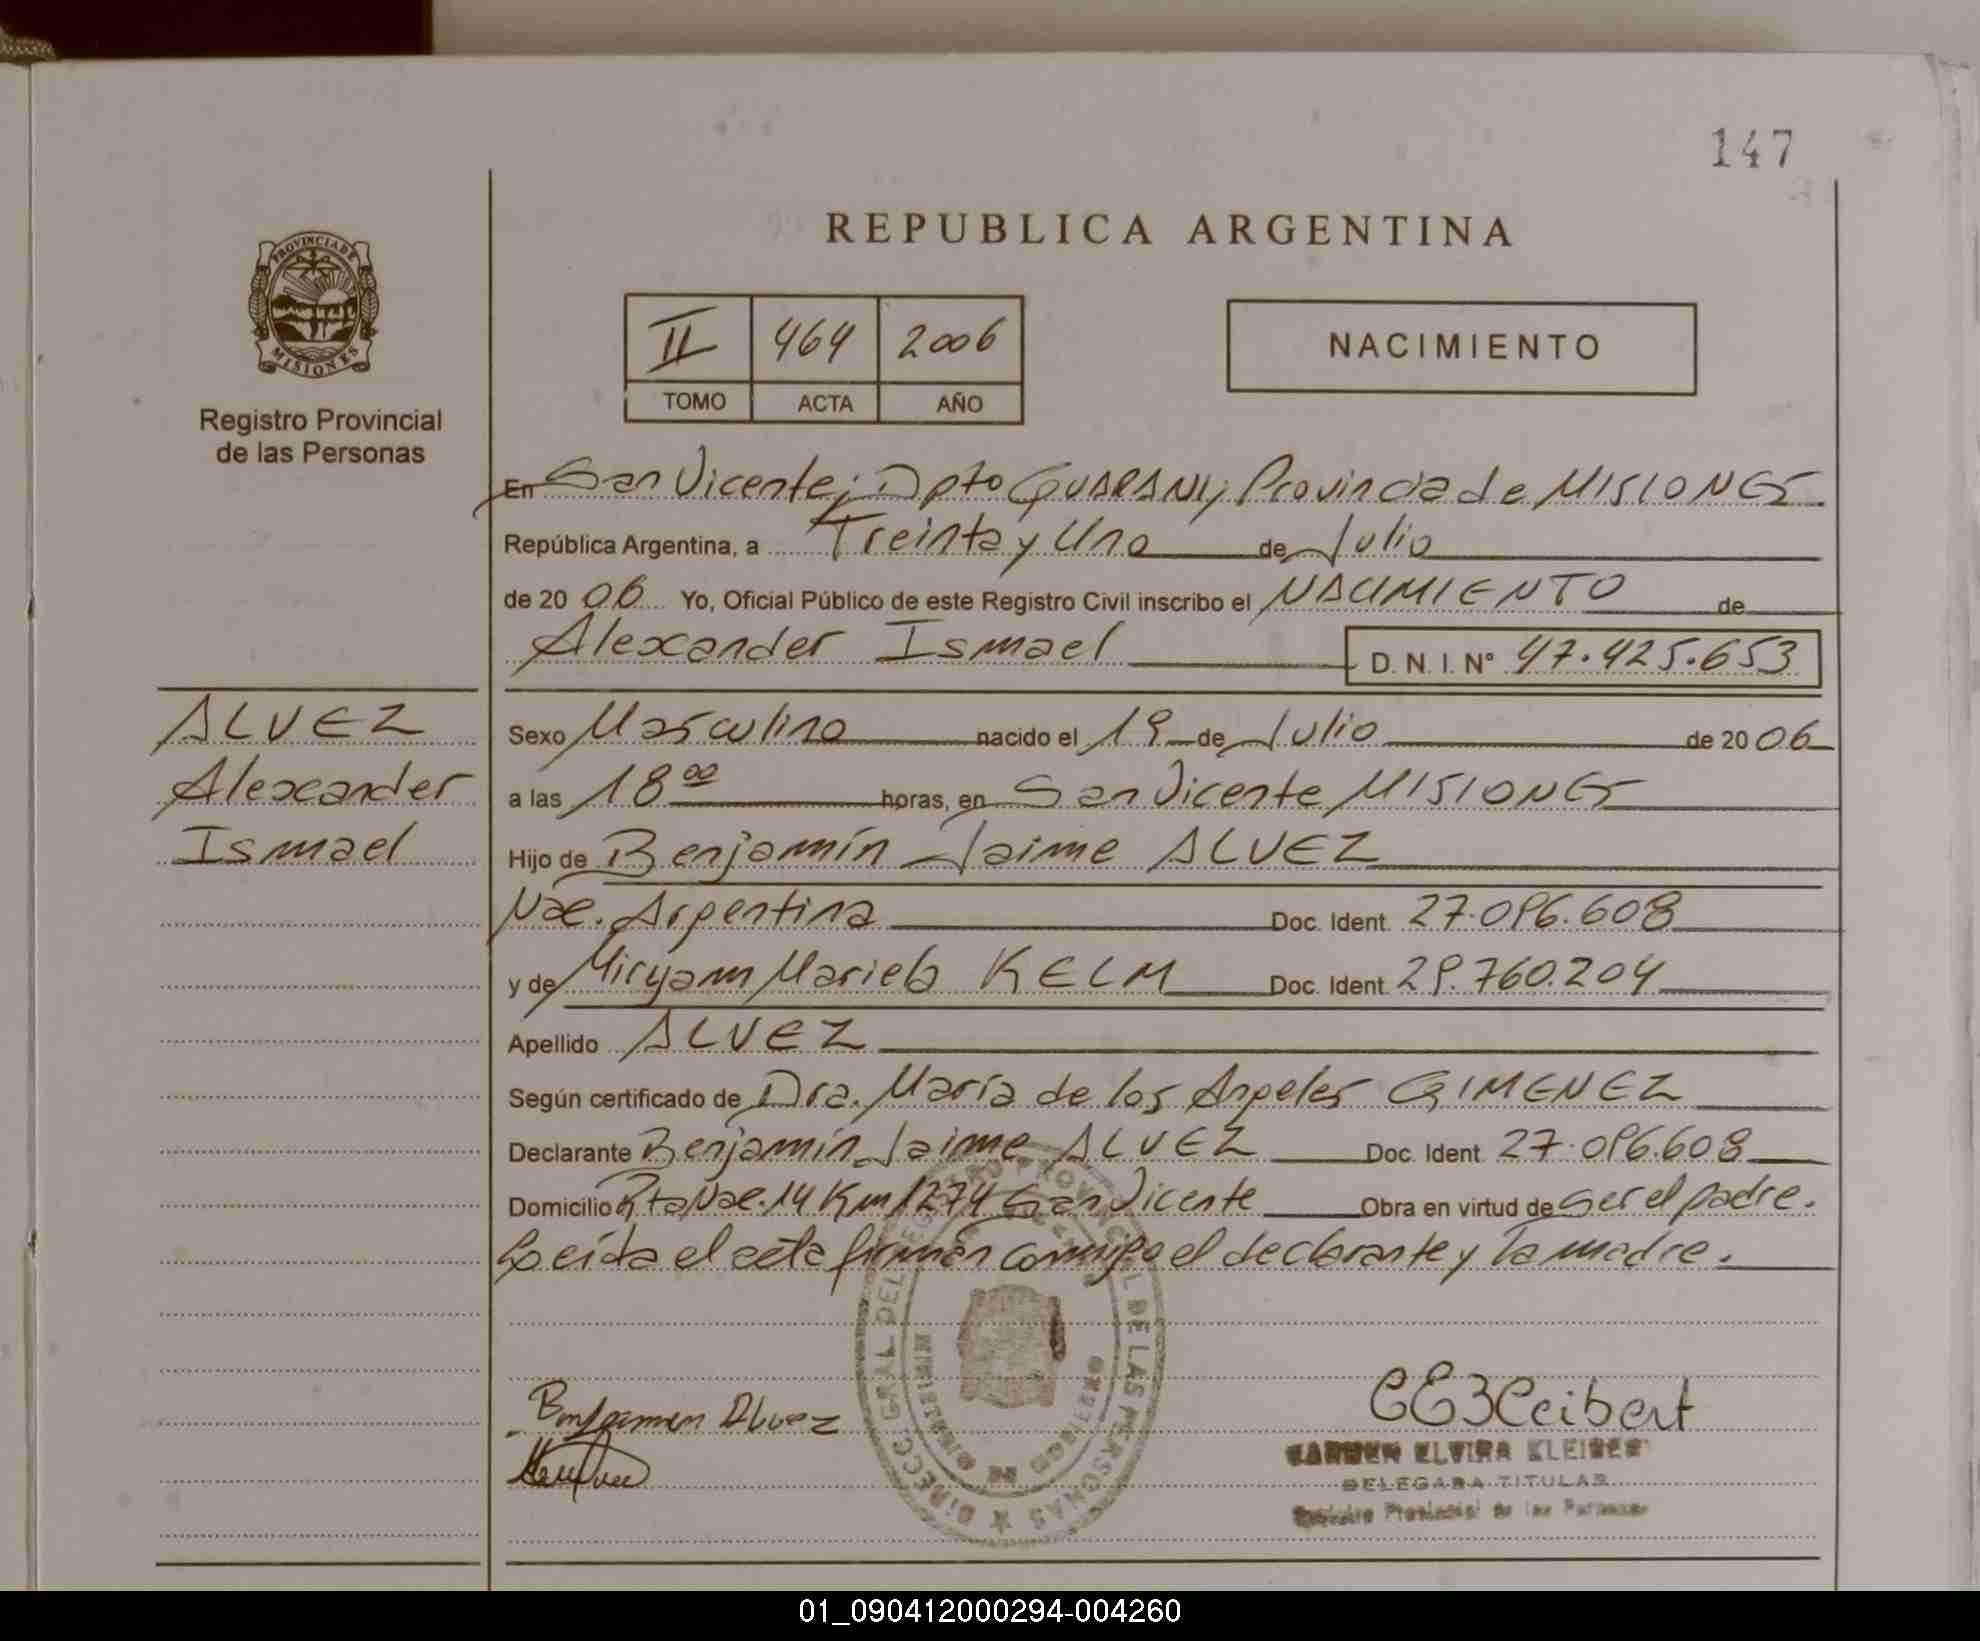 147
REPUBLICA ARGENTINA
PROVINCIA DE
MISIONES
Registro Provincial
de las Personas
II 464 2006
TOMO ACTA AÑO
NACIMIENTO
En San Vicente; Dpto GUARANI; Provincia de MISIONES
República Argentina, a Treinta y Uno de Julio
de 20 06 Yo, Oficial Público de este Registro Civil inscribo el NACIMIENTO de
Alexander Ismael D. N. I. N° 47.425.653
ALVEZ
Alexander
Ismael
Sexo Masculino nacido el 19 de Julio de 20 06
a las 18 00 horas, en San Vicente MISIONES
Hijo de Benjamín Jaime ALVEZ
Nac. Argentina Doc. Ident. 27.096.608
y de Miryam Mariela KELM Doc. Ident. 29.760.204
Apellido ALVEZ
Según certificado de Dra. María de los Angeles GIMENEZ
Declarante Benjamín Jaime ALVEZ Doc. Ident. 27.096.608
Domicilio Rta Nac. 14 Km 1274 San Vicente Obra en virtud de ser el padre.
Leída el acta firman conmigo el declarante y la madre.
DIRECC. GRAL. DEL REGISTRO PROVINCIAL DE LAS PERSONAS
Benjamin Alvez
CARMEN ELVIRA
DELEGADA TITULAR
Registro Provincial de las Personas
01_090412000294-004260